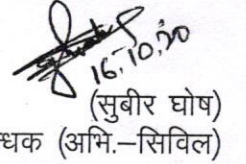 16.10.20
(सुबीर घोष)
धक (अभि.–सिविल)